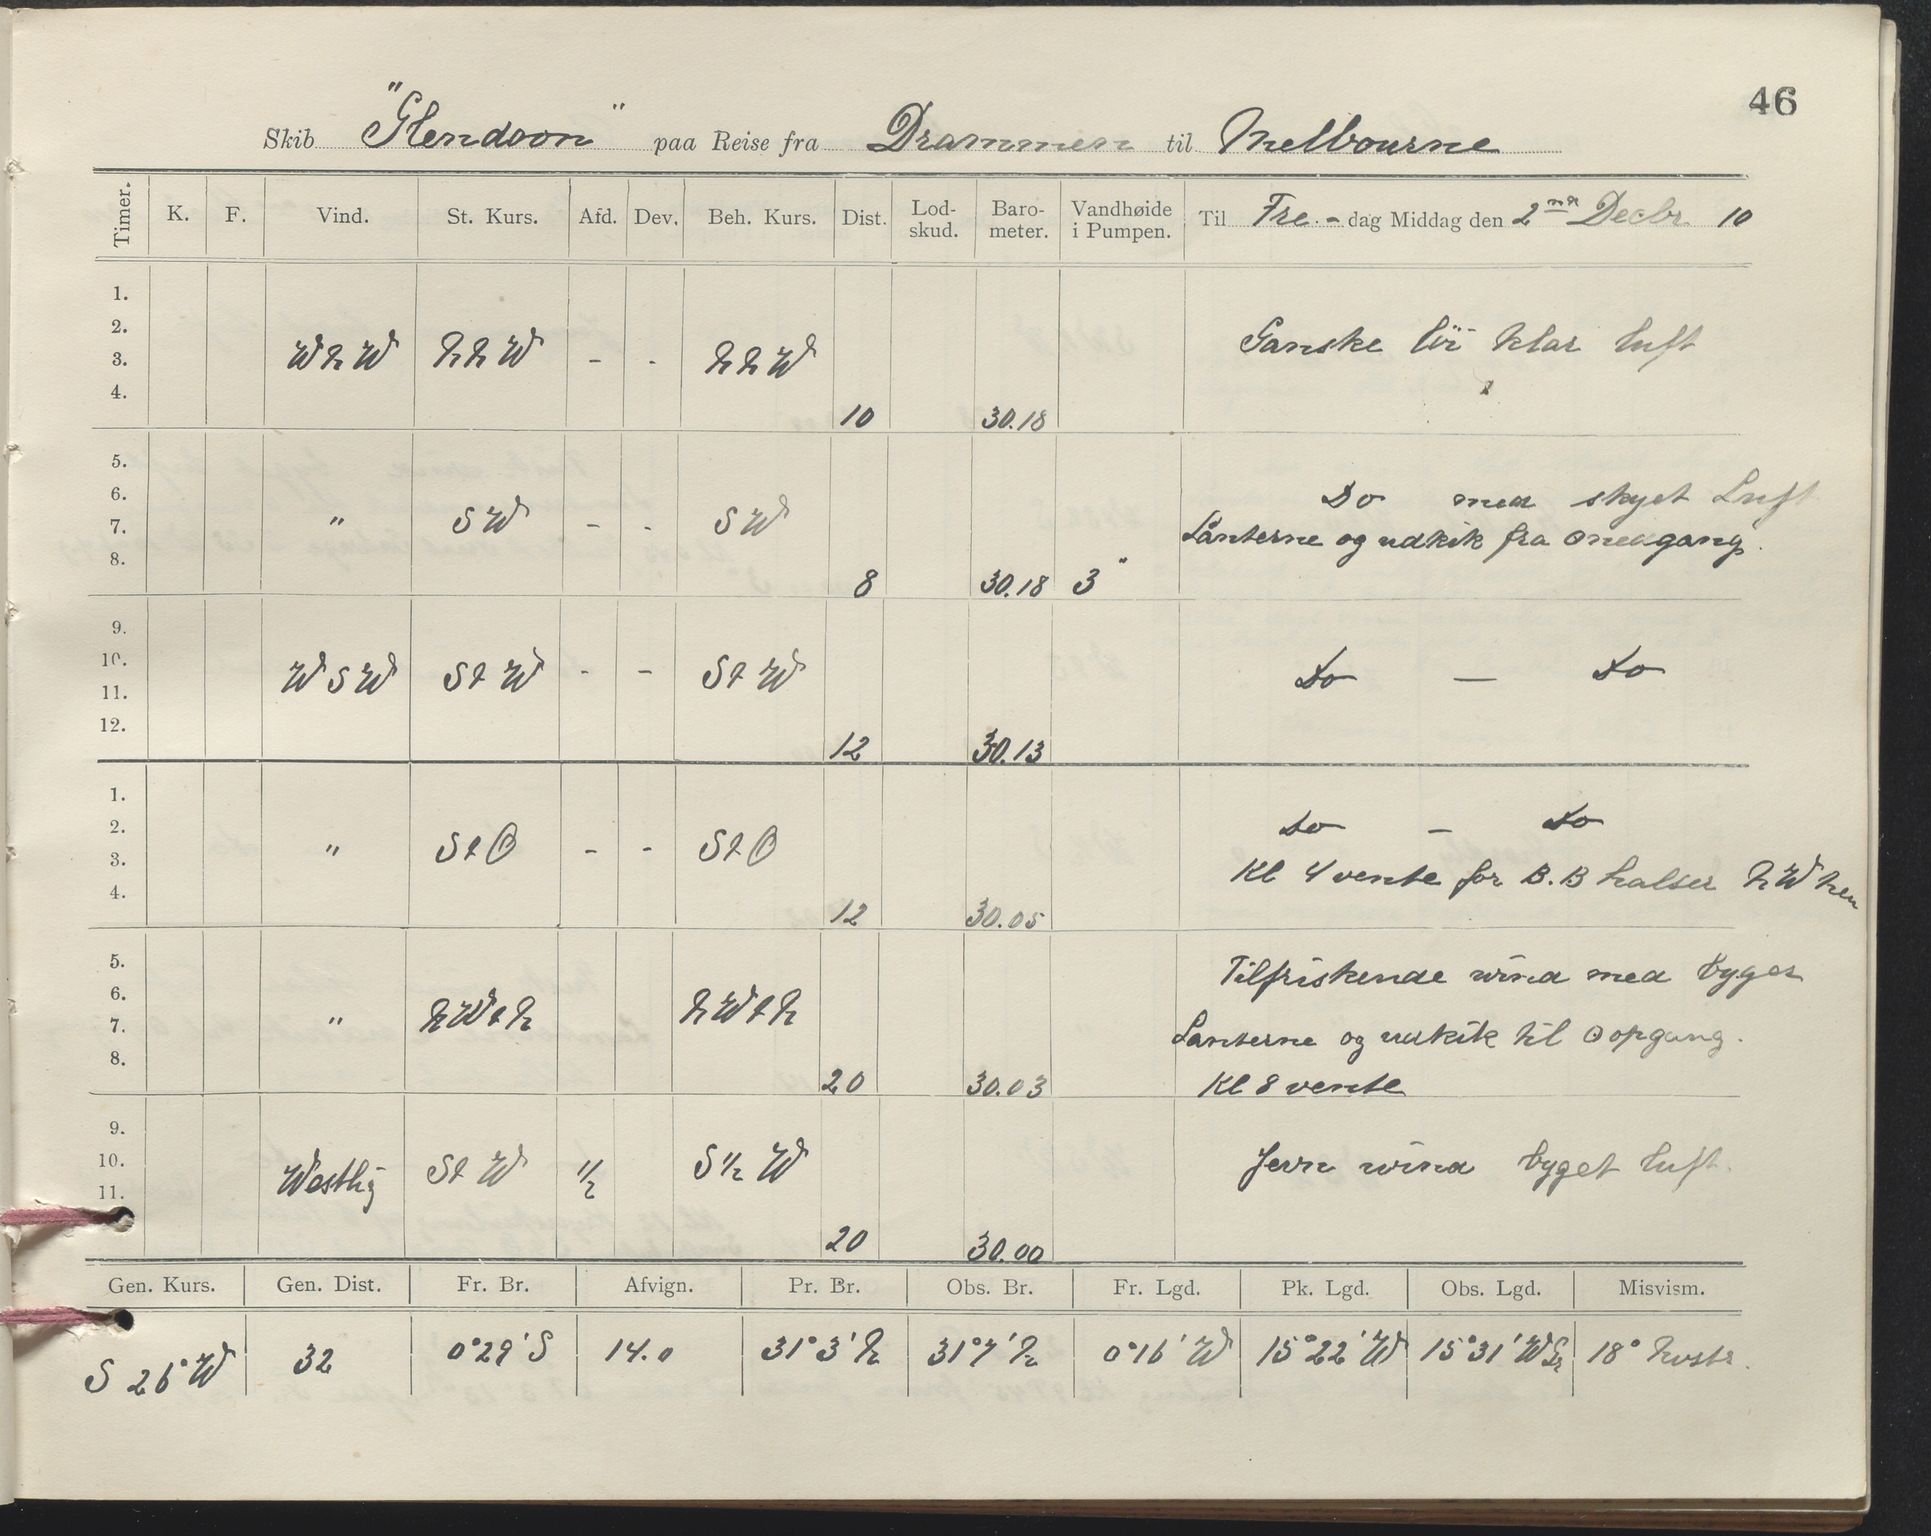 46
Skib "Glendoon" paa Reise fra Drammen til Melbourne
Timer. K. F. Vind. St. Kurs. Afd. Dev. Beh. Kurs. Dist. Lod-skud. Baro-meter. Vandhøide i Pumpen. Til Fre.- dag Middag den 2nd Decbr 10
1.
2.
3. WNW NNW - - NNW Ganske löi klar luft
4. 10 30.18
5.
6. Do med skyet Luft
7. " SW - - SW Lanterne og udkik fra ⊙nedgang.
8. 8 30.18 3"
9.
10. WSW StW - - StW Do — Do
11.
12. 12 30.13
1.
2. Do — Do
3. " StO - - StO Kl 4 vente for B.B halser NW hen
4. 12 30.05
5. Tilfriskende wind med byger
6.
7. " NWtN NWtN Lanterne og udkik til ⊙opgang.
8. 20 30.03 Kl 8 vente
9.
10. Westlig StW 1/2 S 1/2 W Jevn wind byget luft.
11.
20 30.00
Gen. Kurs. Gen. Dist. Fr. Br. Afvign. Pr. Br. Obs. Br. Fr. Lgd. Pk. Lgd. Obs. Lgd. Misvism.
S 26° W 32 0°29' S 14.0 31°3' N 31°7' N 0°16' W 15°22' W 15°31' W Gr 18° hvstr.